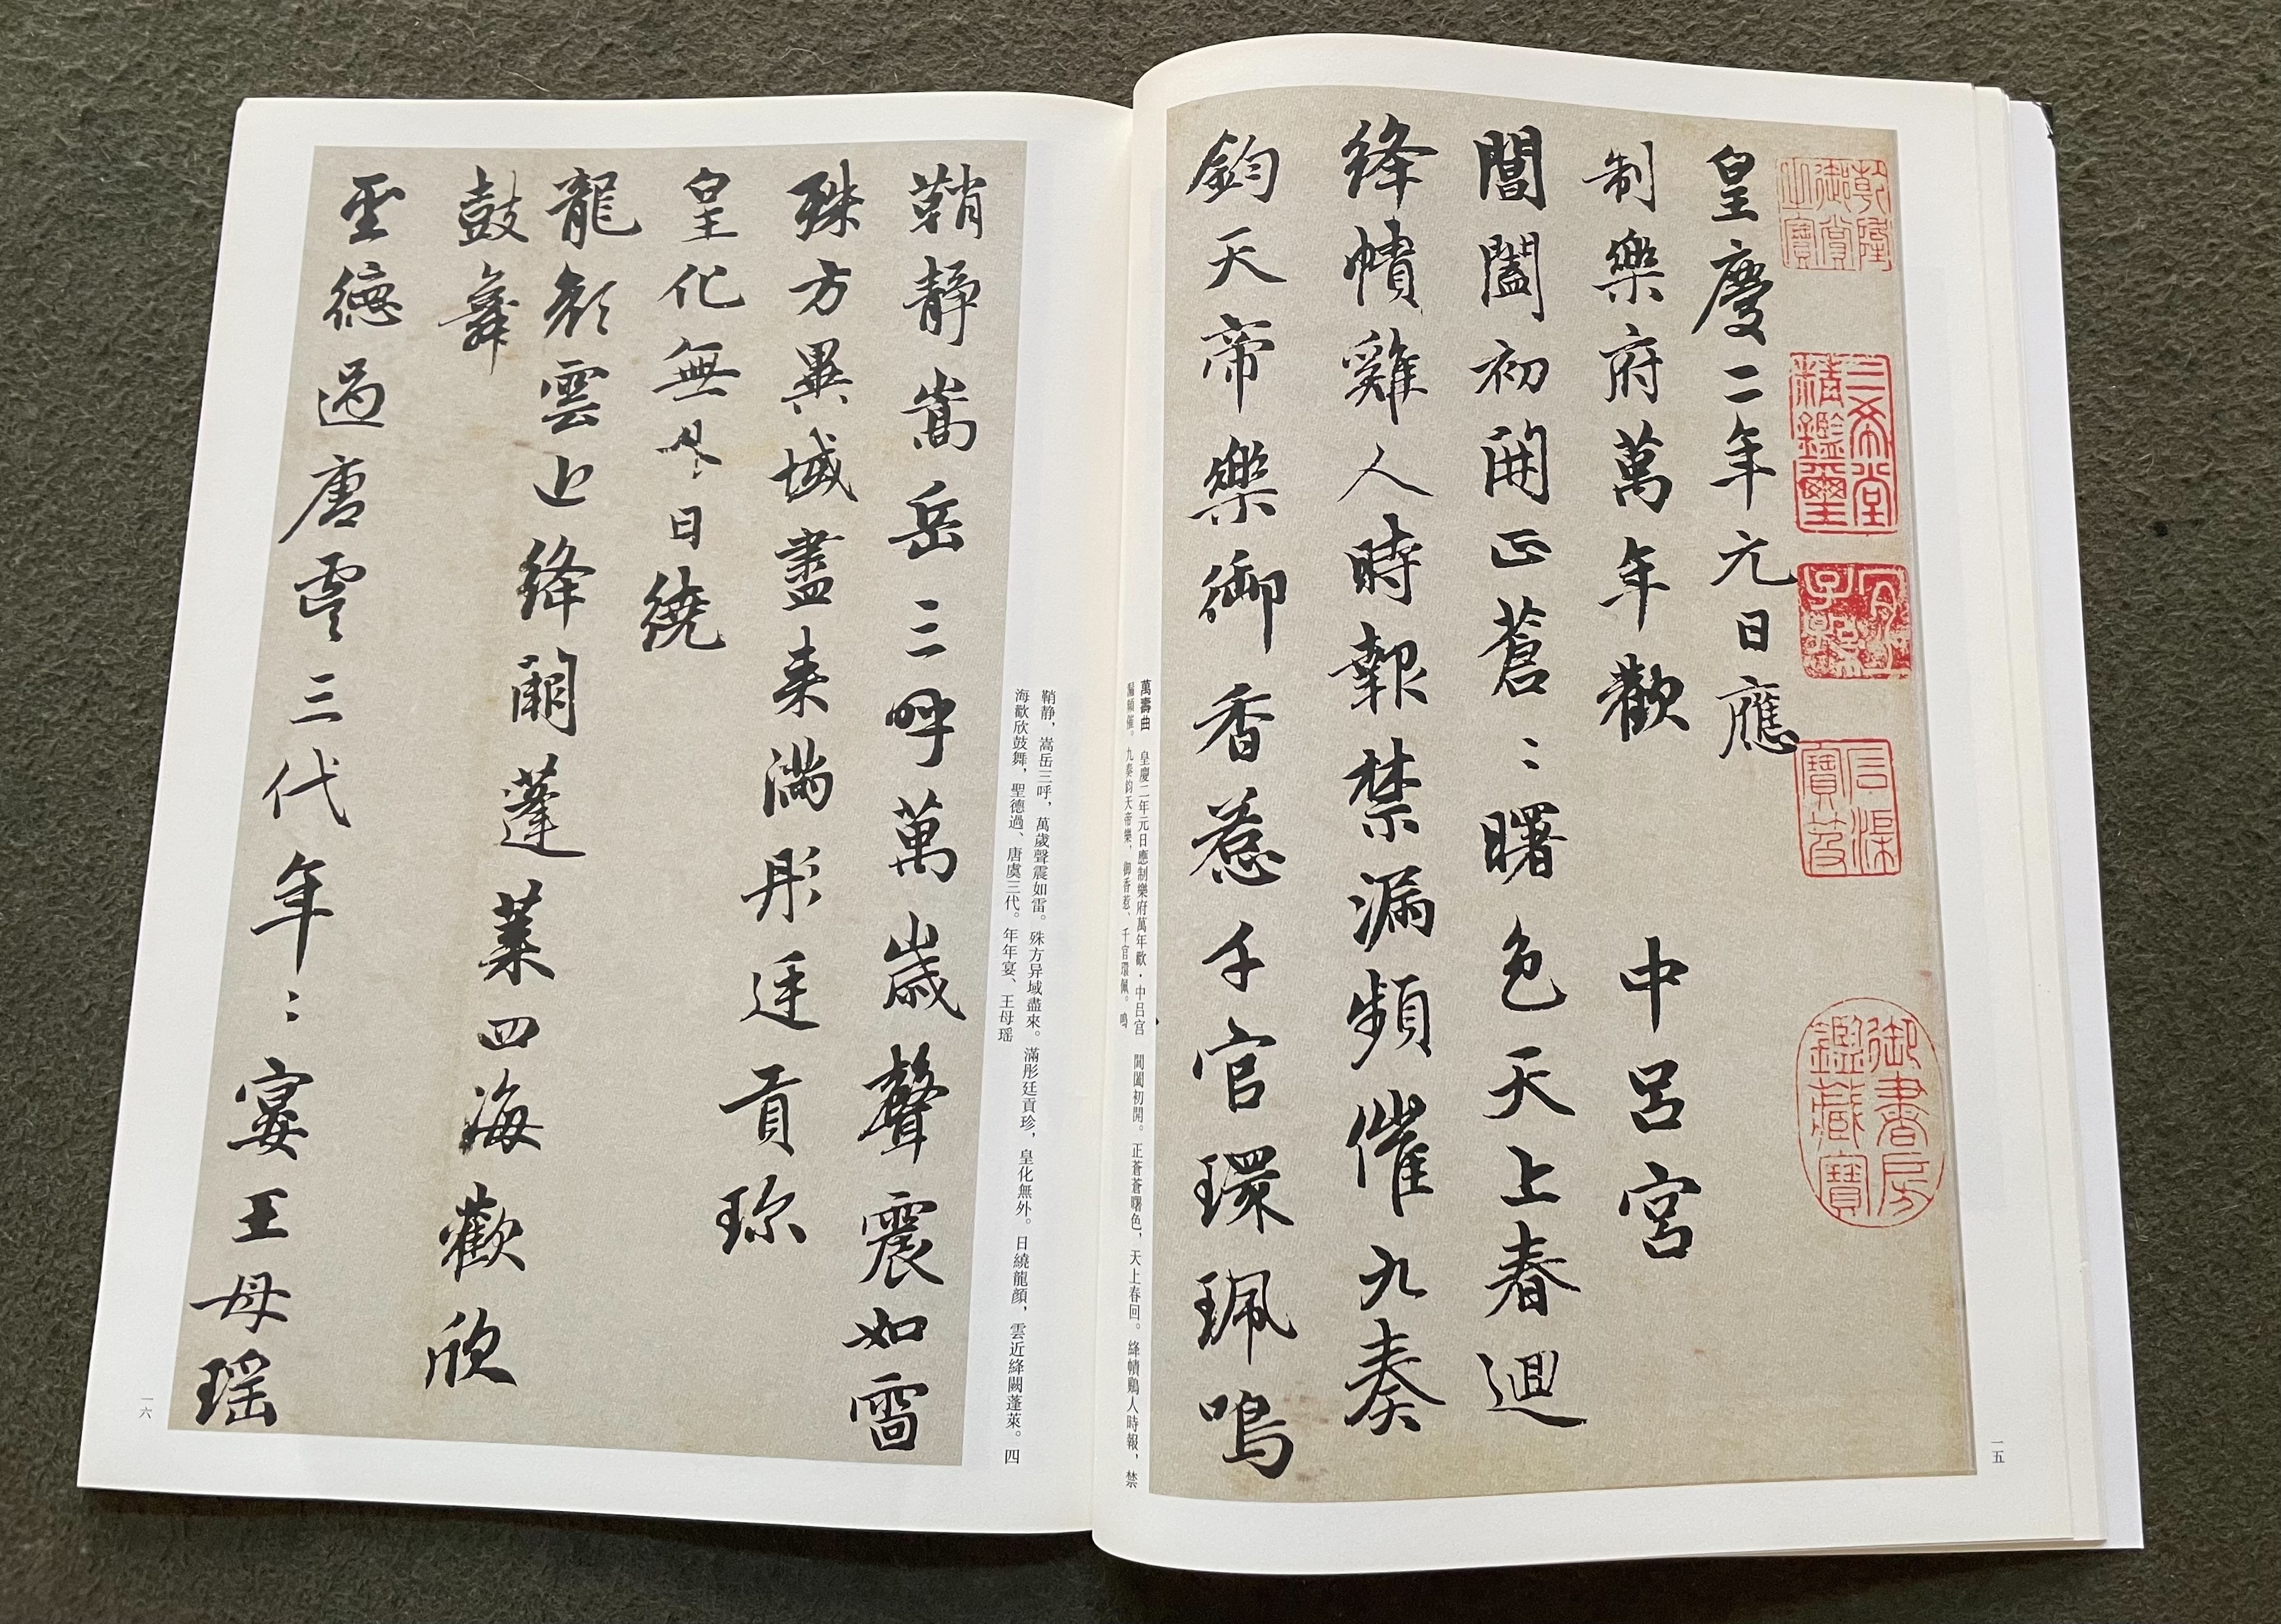 皇慶二年元日應
制樂府萬年歡 中呂宮
閶闔初開正蒼〻曙色天上春迴
絳幘雞人時報禁漏頻催九奏
鈞天帝樂御香惹千官環珮鳴
乾隆御賞之寶
三希堂精鑑璽
宜子孫
石渠寶笈
御書房鑑藏寶
萬壽曲 皇慶二年元日應制樂府萬年歡·中吕宮 閶闔初開。正蒼蒼曙色，天上春回。絳幘鷄人時報，禁
漏頻催。九奏鈞天帝樂，御香惹、千官環佩。鳴
一五
鞘靜嵩岳三呼萬歲聲震如雷
殊方異域盡来滿彤廷貢珎
皇化無外日繞
龍顔雲近絳闕蓬萊四海歡欣
鼓舞
聖德過唐虞三代年〻宴王母瑶
鞘静，嵩岳三呼，萬歲聲震如雷。殊方异域盡來。滿彤廷貢珍，皇化無外。日繞龍顔，雲近絳闕蓬萊。四
海歡欣鼓舞，聖德過、唐虞三代。年年宴、王母瑶
一六